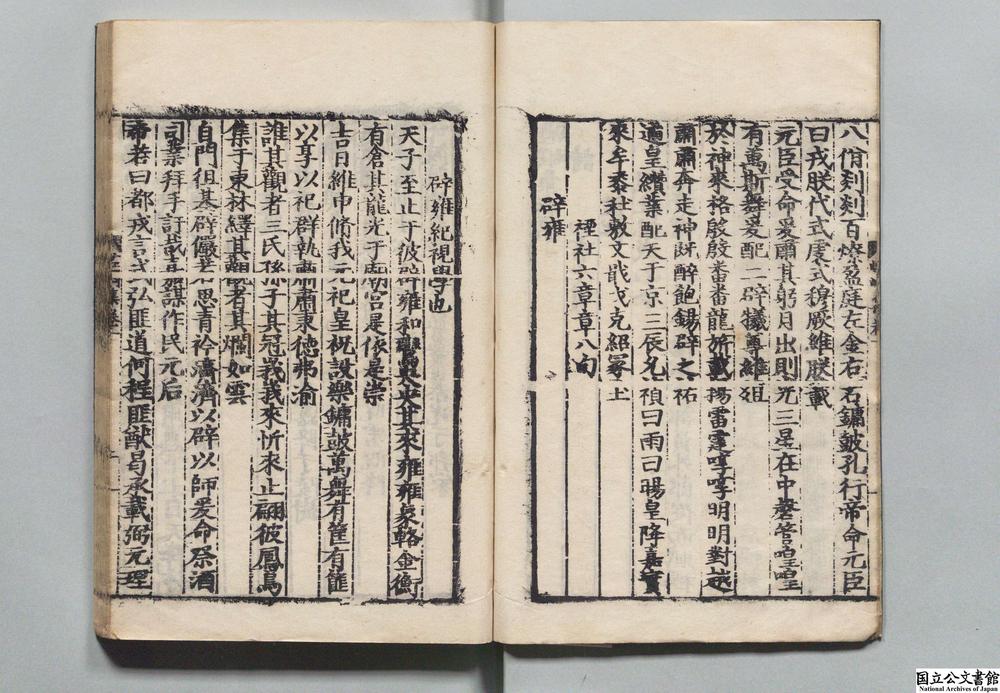 八佾剡剡百燎盈庭左金右石鏞皷孔行帝命元臣
曰戎朕代式虔式穆厥維朕載
元臣受命爰肅其躬月出則元三星在中磬管喤喤
有萬斯舞爰配二辟犧尊維俎
於神來格殷殷番番龍旂載揚雷霆嘑嘑明明對越
肅肅奔走神旣醉飽錫辟之祐
遹皇纘業配天于京三辰允禎曰雨曰暘皇降嘉實
來牟黍社敷文戢戈克紹冢土
禋社六章章八句
辟雍
辟雍紀視學也
天子至止于彼辟雍和鸞其來雍雍象輅金衡
有倉其龍光于廟宮是依是崇
吉日維中脩我元祀皇祝設樂鏞皷萬舞有筐有篚
以享以祀群執肅肅東德弗渝
誰其觀者三氏孫子其冠峩峩來忻來止翩彼鳳鳥
集于東林繹其觀者其爛如雲
自門徂基辟儼若思青衿濟濟以辟以師爰命祭酒
司業拜手訂謨作民元后
帝若曰都戎言弘匪道何程匪猷曷承載弼元理
国立公文書館
National Archives of Japan